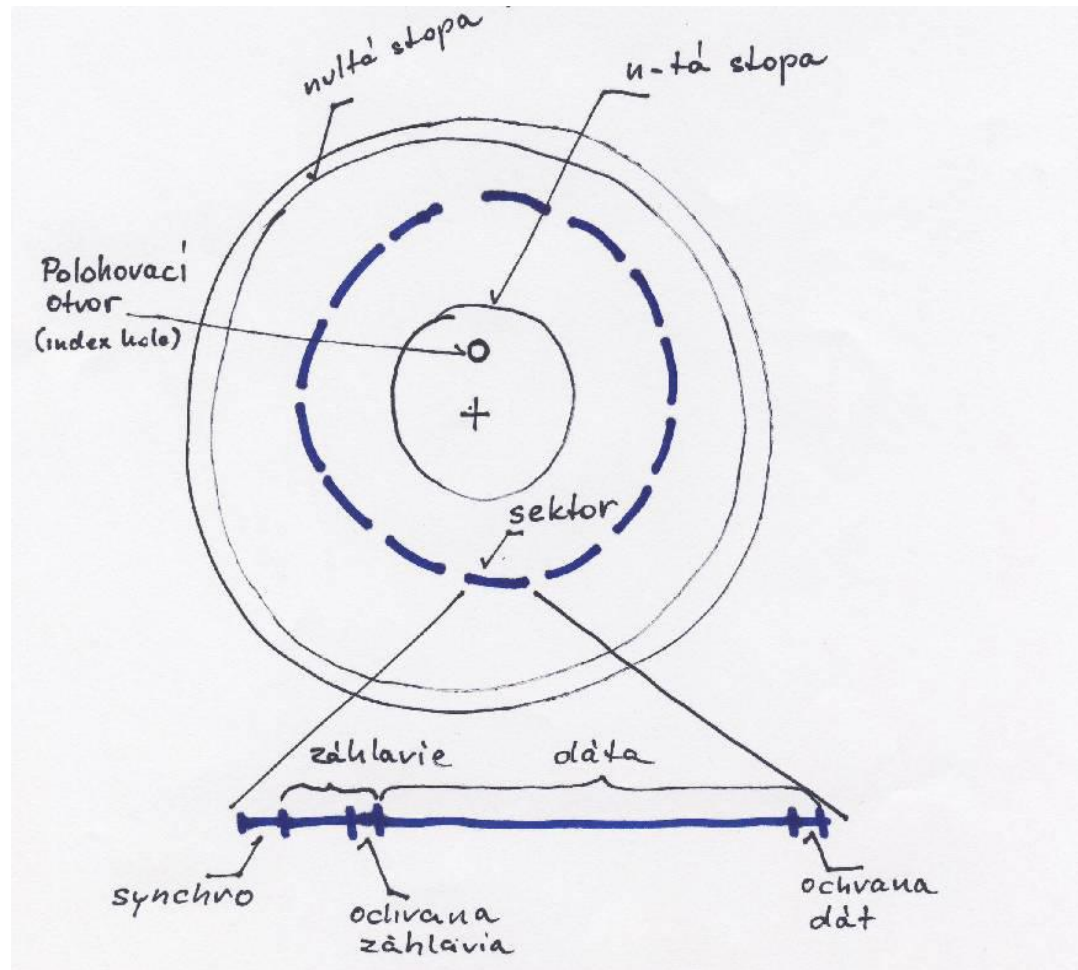 nultá stopa
n-tá stopa
Polohovací
otvor
(index hole)
sektor
záhlavie
dáta
synchro
ochrana
záhlavia
ochrana
dát